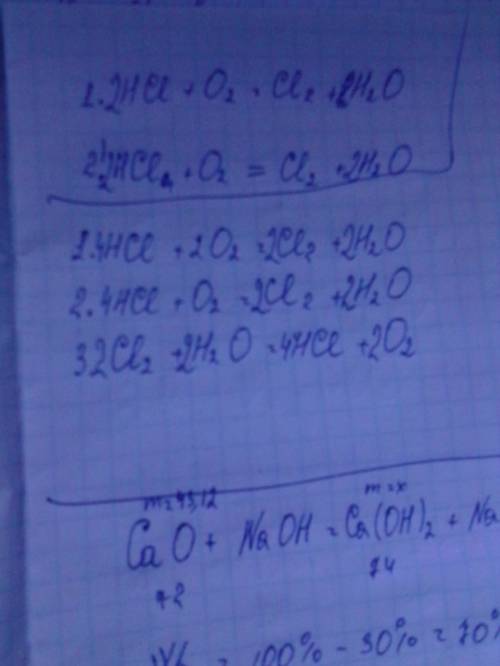 1. 2HCl + O₂ = Cl₂ + 2H₂O
2HCl + O₂ = Cl₂ + 2H₂O
1. 4HCl + 2O₂ = 2Cl₂ + 2H₂O
2. 4HCl + O₂ = 2Cl₂ + 2H₂O
3 2Cl₂ + 2H₂O = 4HCl + 2O₂
m = x
CaO + NaOH = Ca(OH)₂ + Na
74
= 100% - 30% = 70%